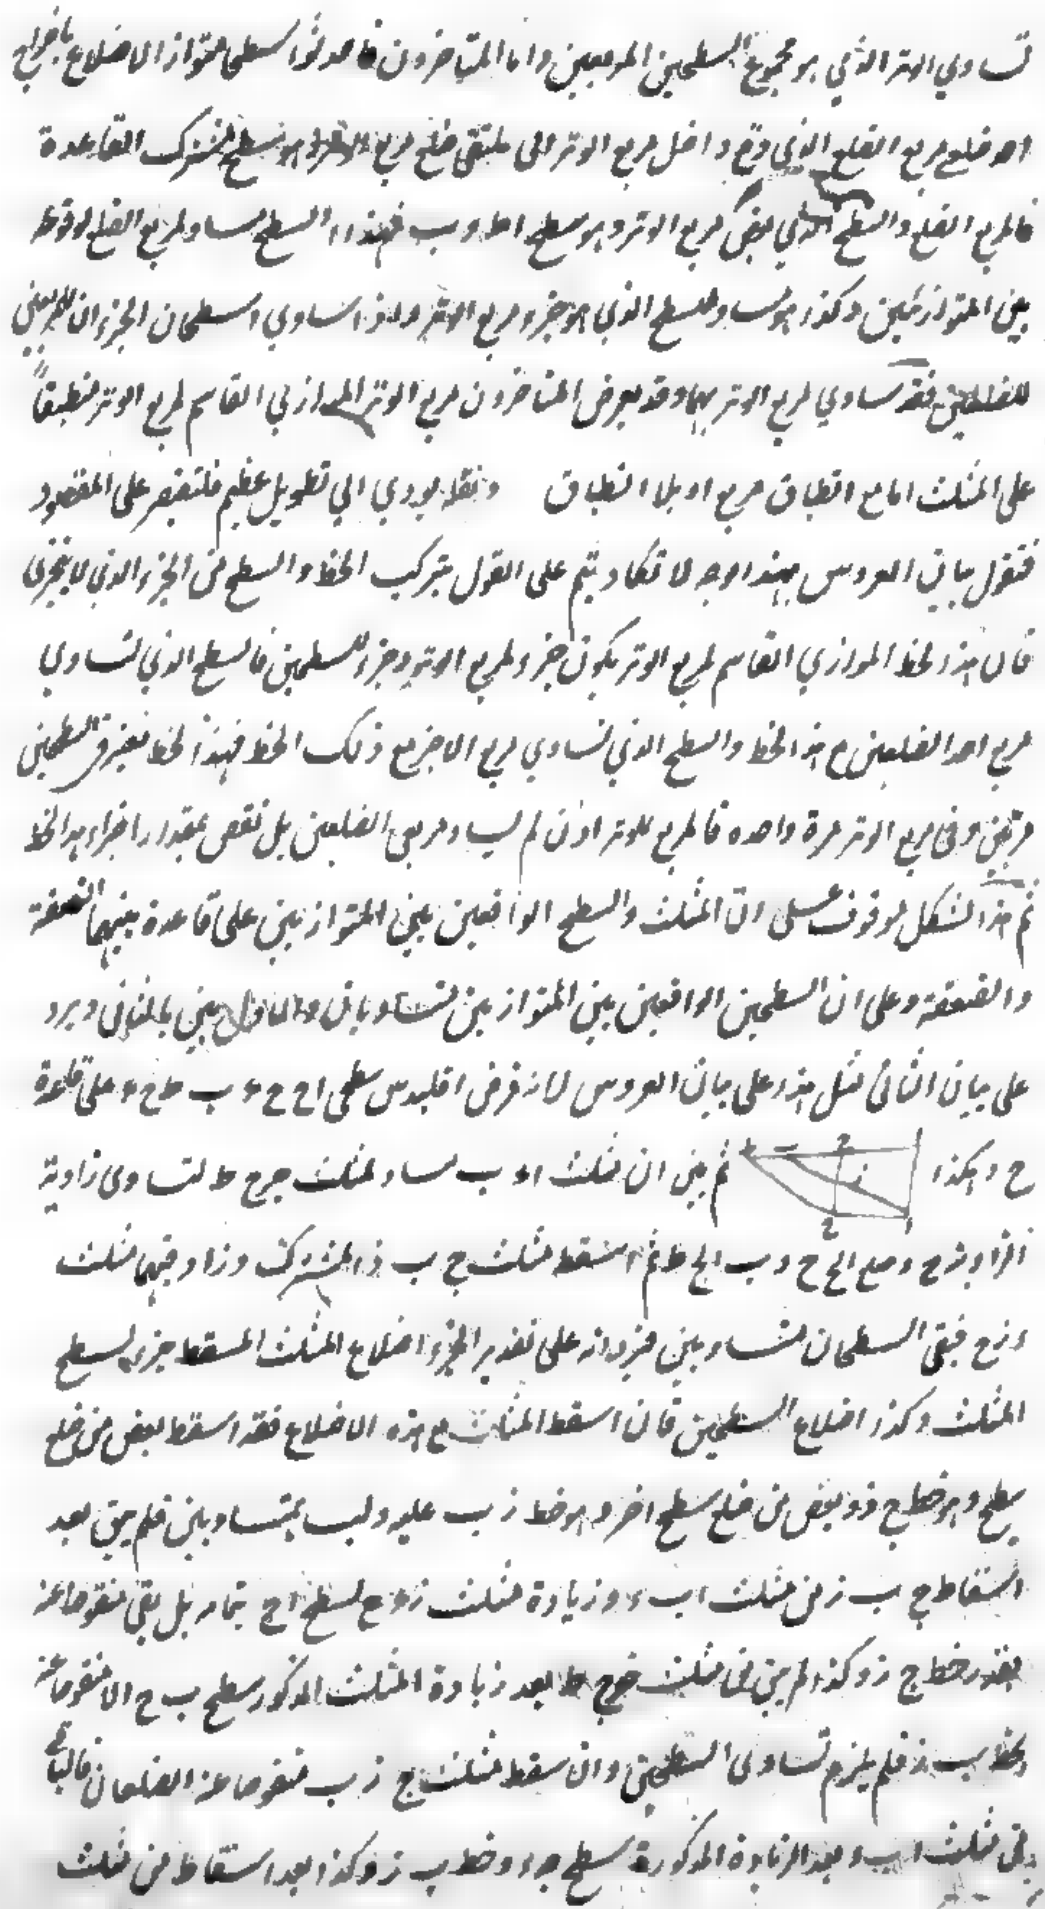 تساوي الوتر الذي هو مجموع السطحين المربعين واما المتاخرون فاحدثوا سطحا متوازي الاضلاع باخراج
احد ضلعي مربع الضلع الذي وقع داخل مربع الوتر الى ملتقى ضلع مربع السطح المشترك القاعدة
فالمربع الضلع والسطح الذي مربع الوتر وهو سطح اط و ب فهذا السطح مساو لمربع الضلع لوقوعه
بين المتوازيين وكذا هو مساو للسطح الذي هو جزء مربع الوتر ولذا تساوي السطحان الجزءان للمربعين
للضلعين فقد تساوي مربع الوتر بهما وقد يعرض المتاخرون مربع الوتر الموازي القاسم لمربع الوتر منطبقاً
على المثلث اما مع انطباق مربع او بلا انطباق ونقله يودي الى تطويل عظيم فلنقتصر على المقصود
فنقول بيان العروس بهذا الوجه لا تكاد يتم على القول بتركب الخط والسطح من الجزء الذي لا يتجزى
فان هذا الخط الموازي القاسم لمربع الوتر يكون جزء لمربع الوتر وجزء للسطحين فالسطح الذي تساوي
مربع احد الضلعين مع هذا الخط والسطح الذي تساوي مربع الاخر مع ذلك الخط فهذا الخط يعتبر في السطحين
مرتين وفي مربع الوتر مرة واحدة فالمربع للوتر اذن لم يساو مربعي الضلعين بل نقص بمقدار اجزاء هذا الخط
ثم هذا الشكل موقوف على ان المثلث والسطح الواقعين بين المتوازيين على قاعدة بينهما النصفية
والضعفية وعلى ان السطحين الواقعين بين المتوازيين متساويان والاول بين بالثاني ويرد
على بيان الثاني مثل هذا على بيان العروس لانه فرض اقليدس سطحي اح ح ء ب ط ح ء على قاعدة
ح ء هكذا ثم بين ان مثلث اء ب مساو لمثلث ج ح ط لتساوى زاوية
الزاوية ح وضلع الح ح و ب الح ط ثم اسقط مثلث ج ب ز المشترك وزاد فيها مثلث
ء ز ح فبقى السطحان متساويين فيرد انه على تقدير الجزء اضلاع المثلث المسقط جزء لسطح
المثلث وكذا اضلاع السطحين فان اسقط المثلث مع هذه الاضلاع فقد اسقط بعض من ضلع
سطح وهو خط ج ز وبعض من ضلع سطح اخر وهو خط ز ب عليه وليسا بمتساويين فلم يبق بعد
اسقاط ج ب ز من مثلث اب ء وزيادة مثلث ز ء ح لسطح اح بتمامه بل بقى منقوصا عنه
بقدر خط ج ز وكذا لم يبق من مثلث ج ح ط بعد زيادة المثلث المذكور سطح ب ح الا منقوصا عنه
بخط ب ز فلم يلزم تساوى السطحين وان سقط مثلث ج ز ب منقوصا عنه الضلعان فالباقي
من مثلث اب ء بعد الزيادة المذكورة سطح ج ء وخط ب ز وكذا بعد اسقاط من مثلث